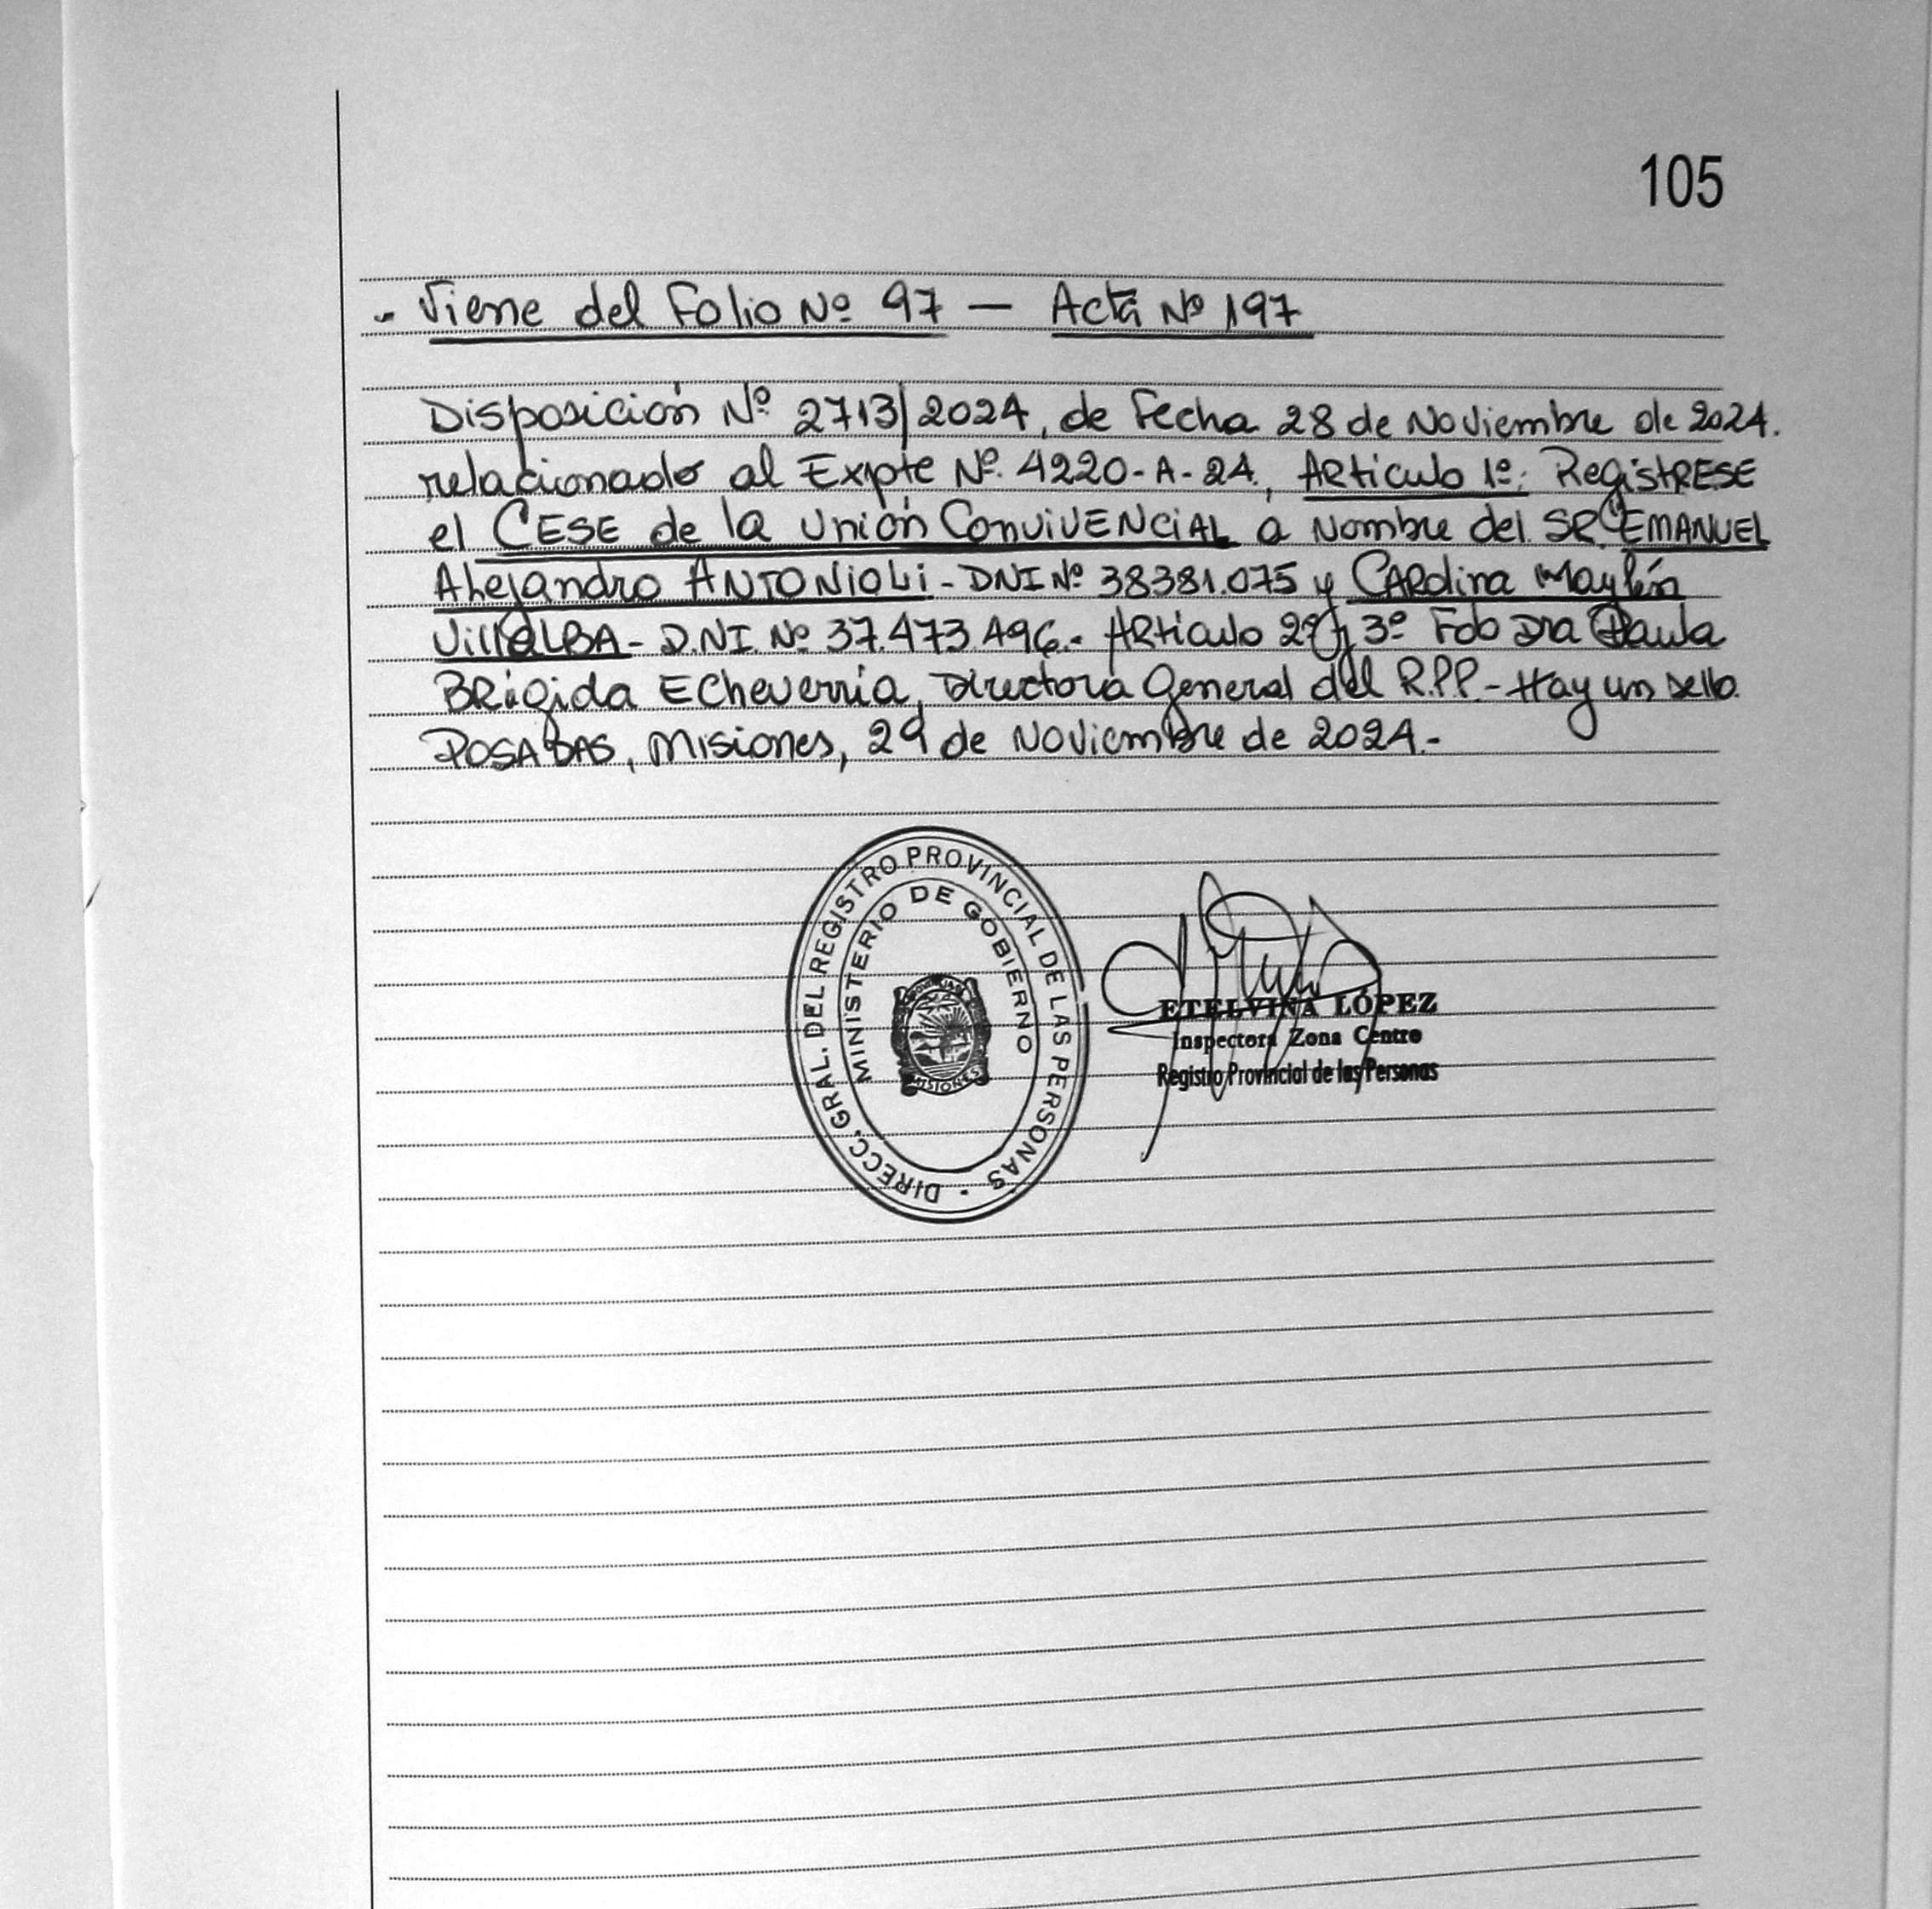 105
- Viene del Folio Nº 97 — Acta Nº 197
Disposición Nº 2713/2024, de Fecha 28 de Noviembre de 2024.
relacionado al Expte Nº. 4220-A-24, Artículo 1º: RegistRESE
el CESE de la Unión ConviVENCIAL a Nombre del SR. EMANUEL
Alejandro ANTONIOLi - DNI Nº 38381.075 y CARolina Maylén
VillALBA - D.N.I. Nº 37.473.496.- ARtículo 2º y 3º Fdo Dra Paula
BRígida Echeverría, Directora General del R.P.P - Hay un sello.
POSADAS, Misiones, 29 de Noviembre de 2024.-
DIRECC. GRAL. DEL REGISTRO PROVINCIAL DE LAS PERSONAS
MINISTERIO DE GOBIERNO
MISIONES
ETELVINA LÓPEZ
Inspectora Zona Centro
Registro Provincial de las Personas